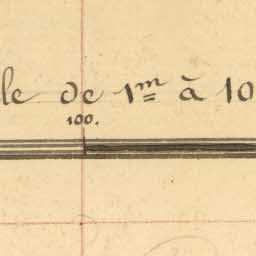 le de 1m à 10
100.